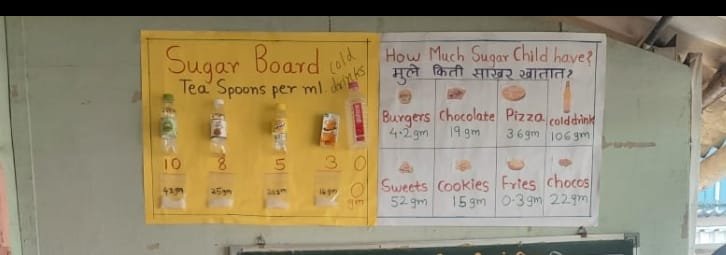 Sugar Board
cold drinks
Tea Spoons per ml.
10 8 5 3 0
42gm 25gm 16gm 0 gm
How Much Sugar Child have?
मुले किती साखर खातात?
Burgers Chocolate Pizza cold drink
4.2gm 19gm 36gm 106gm
Sweets Cookies Fries chocos
52gm 15gm 0.3gm 22gm